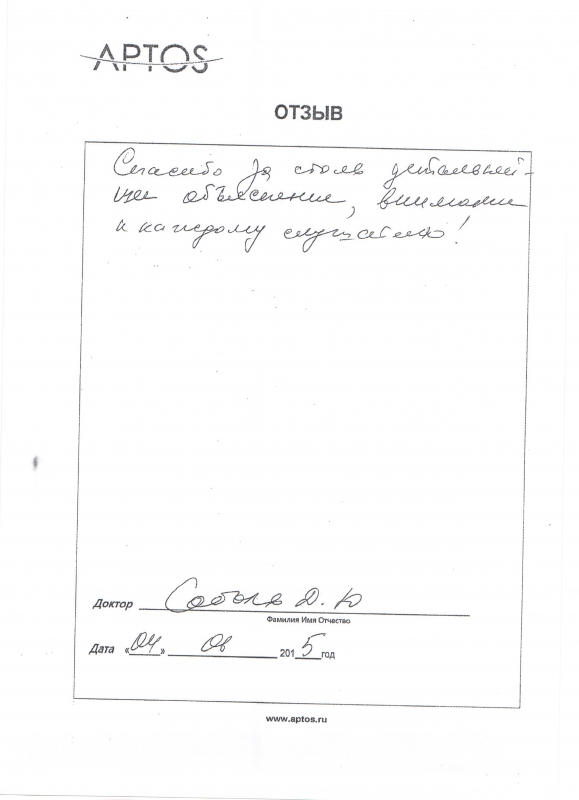 APTOS
ОТЗЫВ
Спасибо за столь детальней-
шее объяснение, внимание
к каждому слушателю!
Доктор Соболь Д. Ю
Фамилия Имя Отчество
Дата «04» 06 2015 год
www.aptos.ru